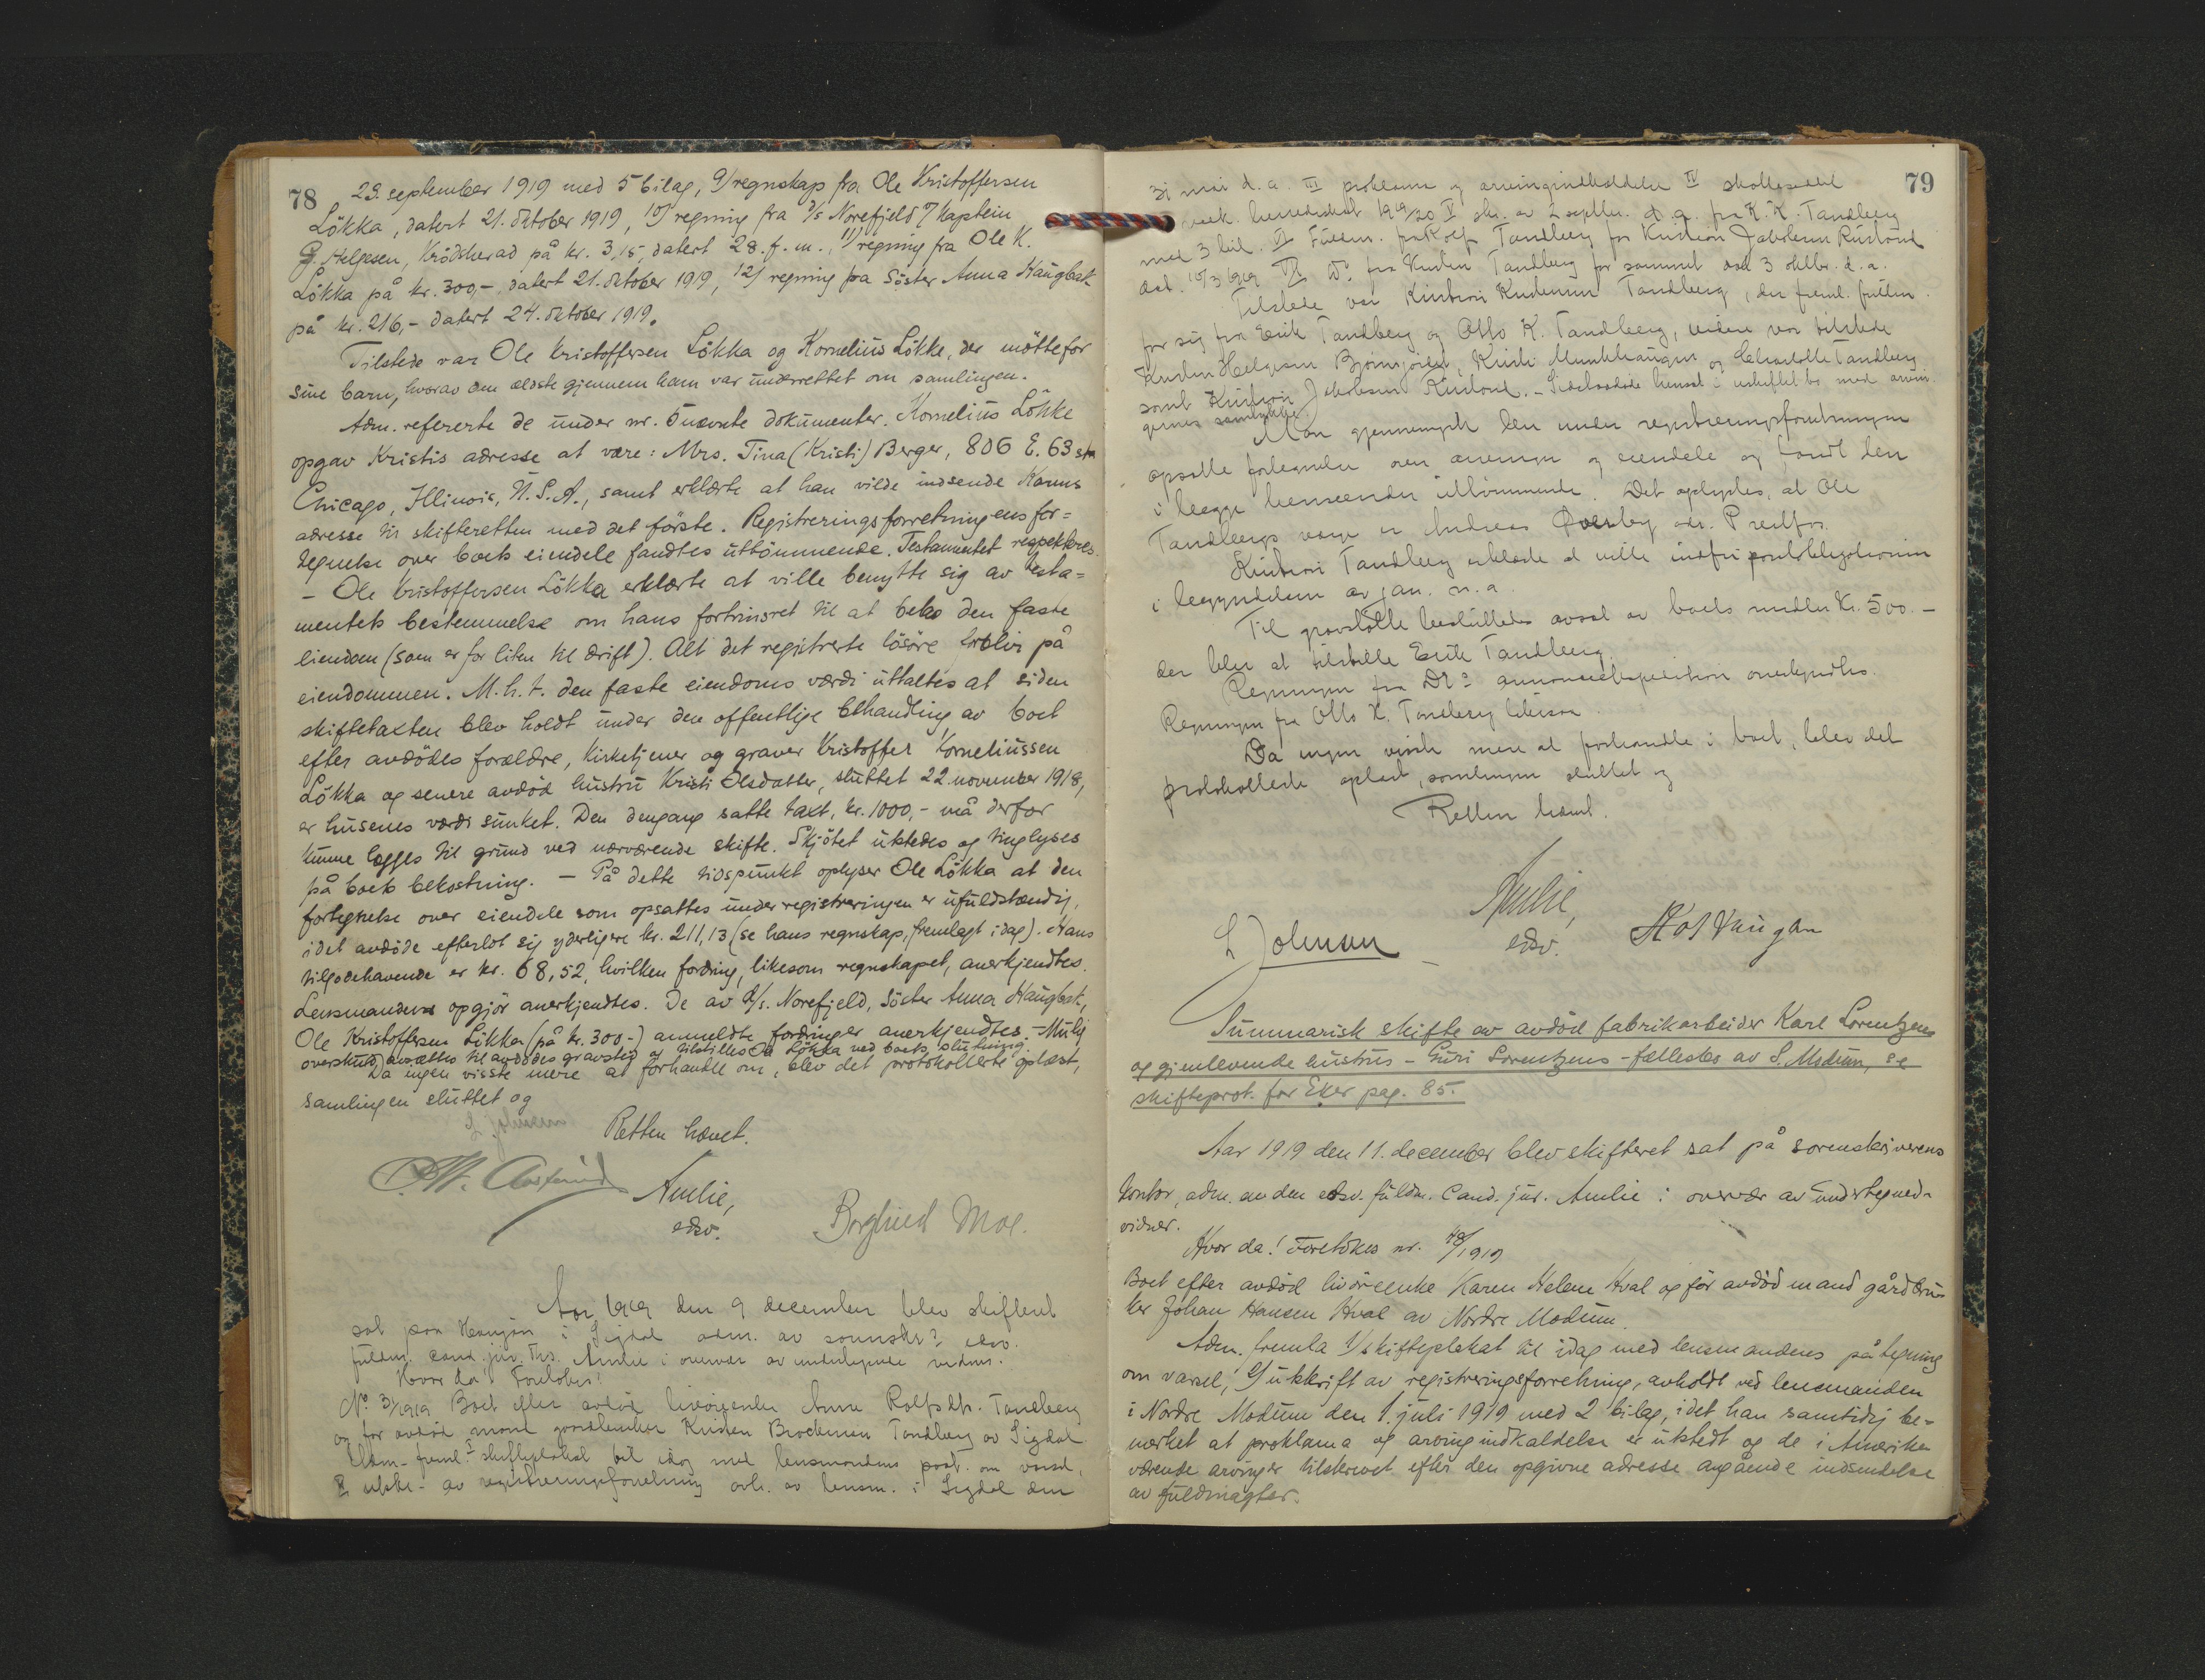 78
23. september 1919 med 5 bilag, 9/ regnskap fra Ole Kristoffersen
Lökka, datert 21. oktober 1919, 10/ regning fra D/s Norefjeld v/ kaptein
G. Helgesen, Krödsherad på kr. 3,15, datert 28. f. m., 11/ regning fra Ole K.
Lökka på kr. 300,- datert 21. oktober 1919, 12/ regning fra Söster Anna Haugbak
på kr. 216,- datert 24. oktober 1919.
Tilstede var Ole Kristoffersen Lökka og Kornelius Lökke, der mötte for
sine barn, hvorav den ældste gjennem ham var underrettet om samlingen.
Adm. refererte de under nr. 5 nævnte dokumenter. Kornelius Lökke
opgav Kristis adresse at være: Mrs. Tina (Kristi) Berger, 806 E. 63 str
Chicago, Illinois, U.S.A., samt erklærte at han vilde indsende Karens
adresse til skifteretten med det förste. Registreringsforretningens for=
tegnelse over boets eiendele fandtes uttömmende. Testamentet respekteres.
- Ole Kristoffersen Lökka erklærte at ville benytte sig av testa=
mentets bestemmelse om hans fortrinsret til at beho den faste
eiendom (som er for liten til drift). Alt det registrerte lösöre forblir på
eiendommen. M.h.t. den faste eiendoms værdi uttaltes at siden
skiftetaxten blev holdt under den offentlige behandling av boet
efter avdödes forældre, kirketjener og graver Kristoffer Korneliussen
Lökka og senere avdöd hustru Kristi Olsdatter, sluttet 22. november 1918,
er husenes værdi sunket. Den dengang satte taxt, kr. 1000,- må derfor
kunne lægges til grund ved nærværende skifte. Skjötet utstedes og tinglyses
på boets bekostning. - På dette tidspunkt oplyser Ole Lökka at den
fortegnelse over eiendele som opsattes under registreringen er ufuldstændig,
idet avdöde efterlot sig yderligere kr. 211,13 (se hans regnskap, fremlagt idag). Hans
tilgodehavende er kr. 68,52, hvilken fordring, likesom regnskapet, anerkjendtes.
Lensmandens opgjör anerkjendtes. De av D/s. Norefjeld, Söster Anna Haugbak,
Ole Kristoffersen Lökka (på kr. 300.-) anmeldte fordringer anerkjendtes. - Mulig
overskud avsættes til avdödes gravsted og tilstilles Ole Lökka ved boets slutning.
Da ingen visste mere at forhandle om, blev det protokollerte oplæst,
samlingen sluttet og
Retten hævet.
Amlie,
edsv.
Borghild Moe.
Aar 1919 den 9 december blev skifteret
sat paa Haugan i Sigdal adm. av sorenskr.s edsv.
fuldm. cand. jur. Ths. Amlie i overvær av undertegnede vidner.
Hvor da Foretokes:
No 3/1919 Boet efter avdöd livöreenke Anne Rolfsdtr. Tandberg
og för avdöd mand gaardbruker Knuten Brockmen Tandberg av Sigdal
Adm. freml. I skifteplakat til idag med lensmandens paat. om varsel,
II utskr. av registreringsforretning avh. av lensm. i Sigdal den
79
31 mai d.a. III proklama og arvingindkaldelse IV skatteseddel
herredsskat 1919/20 V skr. av 2 septbr. d.a. fra K. K. Tandberg
med 3 bil. VI Fuldm. fra Rolf Tandberg for Kristian Jakobsen Rustand
dat. 10/3 1919 VII Do fra Knuten Tandberg for sammet dat 3 oktbr. d.a.
Tilstede var Kristian Knutsen Tandberg, der freml. fuldm.
for sig fra Erik Tandberg og Otto K. Tandberg, videre var tilstede
Helgesen, Kristi Munkhaugen og Charlotte Tandberg
samt Kristian Jakobsen Rustand. - Sidstnævnte hensat i uskiftet bo med arvin
gernes samtykke.
Man gjennemgik den under registreringsforretningen
opsatte fortegnelse over arvinger og eiendele og fandt den
i begge henseender uttömmende. Det oplystes, at Ole
Tandbergs værge er Andreas Överby adr. Prestfos.
Kristian Tandberg erklærte at ville indfri pantobligationen
i begyndelsen av jan. n.a.
Til gravstötte besluttedes avsat av boets midler kr. 500.-
der blir at tilstille Erik Tandberg.
Regningen fra annonceekspedition anerkjendtes.
Regningen fra Otto K. Tandberg likesaa
Da ingen visste mere at forhandle i boet, blev det
protokollerte oplæst, samlingen sluttet og
Retten hævet.
Amlie,
edsv.
L Johnsen
Summarisk skifte av avdöd fabrikarbeider Karl Lorentzens
og gjenlevende hustrus - Guri Lorentzens - fællesbo av S. Modum, se
skifteprot. for Eker pag. 85.
Aar 1919 den 11. december blev skifteret sat på sorenskriverens
kontor, adm. av den edsv. fuldm. Cand. jur. Amlie i overvær av undertegnede
vidner.
Hvor da! Foretokes nr. 48/1919
Boet efter avdöd livöreenke Karen Helene Hval og för avdöd mand gårdbru-
ker Johan Hansen Hval av Nordre Modum.
Adm. fremla 1/ skifteplakat til idag med lensmandens påtegning
om varsel, 2/ utskrift av registreringsforretning, avholdt ved lensmanden
i Nordre Modum den 1. juli 1919 med 2 bilag, idet han samtidig be=
mærket at proklama og arvingindkaldelse er utstedt og de i Amerika
værende arvinger tilskrevet efter den opgivne adresse angående indsendelse
av fuldmagter.